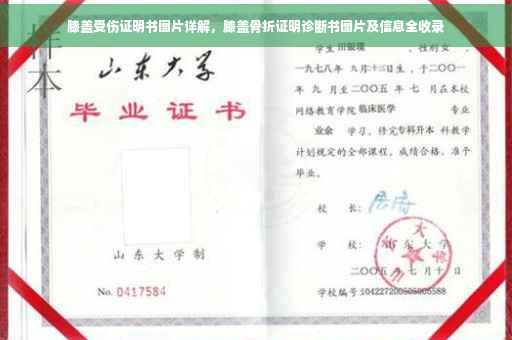 膝盖受伤证明书图片详解，膝盖骨折证明诊断书图片及信息全收录
样本
山东大学
毕业证书
山东大学制
No. 0417584
学生田银瑞，性别女，
一九七八年 九月十三日生，于二〇〇一
年 九 月至二〇〇五 年 七 月在本校
网络教育学院临床医学 专业
业余 学习，修完专科升本 科教学
计划规定的全部课程，成绩合格，准予
毕业。
校 长：
学 校：山东大学
二〇〇五年七月十日
学校编号:104227200505005588